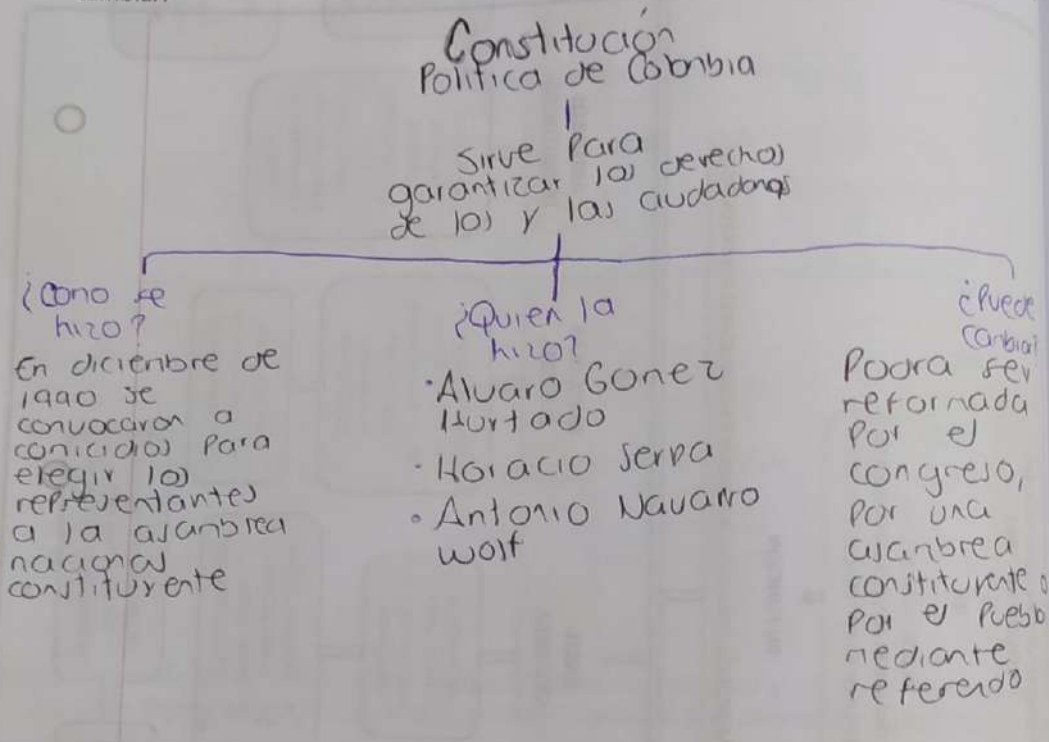 Constitución
Política de Colombia
Sirve para
garantizar los derechos
de los y las ciudadanos
¿Como se
hizo?
En diciembre de
1990 se
convocaron a
comicidios para
elegir los
representantes
a la asambrea
nacional
constituyente
¿Quien la
hizo?
• Alvaro Gomez
Hurtado
• Horacio Serpa
• Antonio Navarro
wolf
¿Puede
cambiar?
Podra ser
reformada
por el
congreso,
por una
asambrea
constituyente o
por el pueblo
mediante
referendo